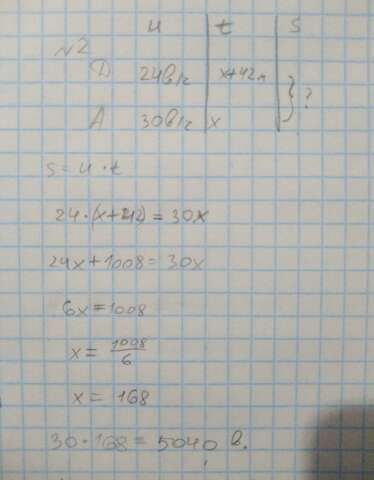 и t s
№2
D 24в/г x+42л } ?
A 30в/г x
s = и · t
24 · (x+42) = 30x
24x+1008 = 30x
6x = 1008
x = 1008/6
x = 168
30 · 168 = 5040 в.